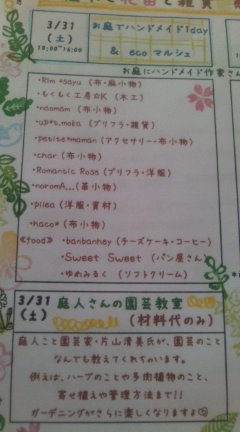 花苗と雑貨
3/31
(土)
10:00~16:00
お庭でハンドメイド1day
& eco マルシェ
お庭にハンドメイド作家さん
・Rim*sayu (布・麻小物)
・もくもく工房☆K (木工)
・naomam (布小物)
・up*t.moka (プリフラ・雑貨)
・petite*maman (アクセサリー・布小物)
・char (布小物)
・Romantic Rosa (プリフラ・洋服)
・noromA... (革小物)
・pilea (洋服・資材)
・haco* (布小物)
《food》 ・banbanhey (チーズケーキ・コーヒー)
・Sweet Sweet (パン屋さん)
・ゆめみるく (ソフトクリーム)
3/31
(土)
庭人さんの園芸教室
(材料代のみ)
庭人こと園芸家・片山清美氏が、園芸のこと
なんでも教えてくれちゃいます。
例えば、ハーブのことや多肉植物のこと、
寄せ植えや管理方法まで!!
ガーデニングがさらに楽しくなりますよ